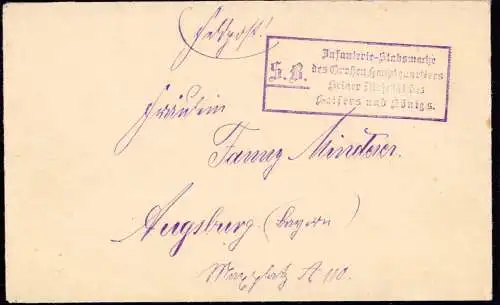 Feldpost!
S.B.
Infanterie-Stabswache
des Großen Hauptquartiers
Seiner Majestät des
Kaisers und Königs.
Fräulein
Fanny Minderer.
Augsburg (Bayern)
A 110.